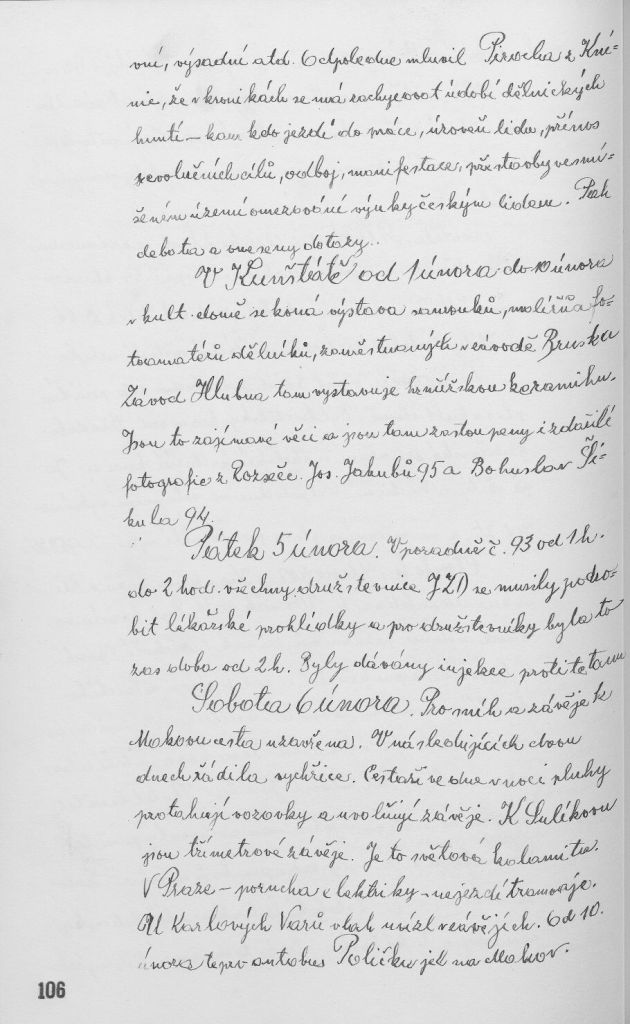 vní, výsadní atd. Odpoledne mluvil Pirocha z Kní-
nic, že v kronikách se má zachycovat údobí dělnických
huntí – kam kdo jezdí do práce, úroveň lidu, přínos
revolučních cílů, odboj, manifestace, přestavby vesmí-
šeném území omezování výuky českým lidem. Pak
debata a vneseny dotazy..
V Kunštátě od 1 února do 10 února
v kult. domě se koná výstava samouků, malířů a fo-
toamatérů dělníků, zaměstnaných v závodě Bruska
Závod Hlubna tam vystavuje hončířskou keramiku.
Jsou to zajímavé věci a jsou tam zastoupeny i zdařilé
fotografie z Rozseče. Jos. Jakubů 95 a Bohuslav Ši-
kula 94.
Pátek 5 února. V poradně č. 93 od 1 h.
do 2 hod. všechny družstevnice JZD se musily podro-
bit lékařské prohlídky a pro družstevníky byla to
zas doba od 2 h. Byly dávány injekce proti tetanu
Sobota 6 února. Pro sníh a závěje k
Makovu cesta uzavřena. V následujících dvou
dnech řádila vychřice. Cestaři ve dne v noci pluhy
protahují vozovky a uvolňují závěje. K Sulíkovu
jsou třímetrové závěje. Je to světová kalamita.
V Praze – porucha elektriky – nejezdí tramvaje.
U Karlových Varů vlak uvízl v závějích. Od 10.
února teprv autobus Poličku jel na Makov.
106